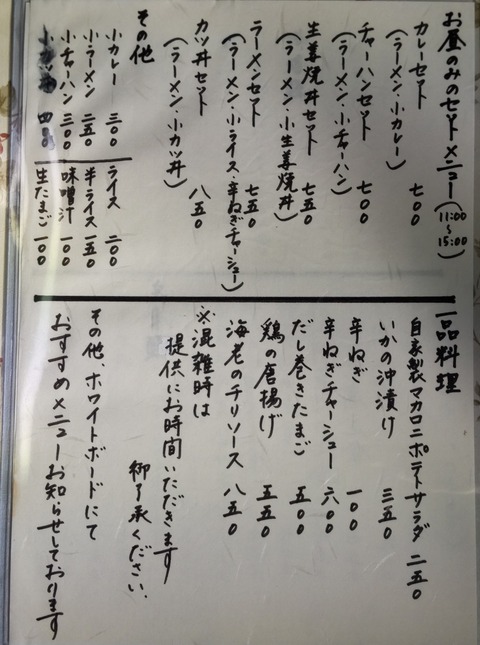 お昼のみのセットメニュー(11:00〜15:00)
カレーセット 七〇〇
(ラーメン・小カレー)
チャーハンセット 七〇〇
(ラーメン・小チャーハン)
生姜焼丼セット 七五〇
(ラーメン・小生姜焼丼)
ラーメンセット 七五〇
(ラーメン・小ライス・辛ねぎチャーシュー)
カツ丼セット 八五〇
(ラーメン・小カツ丼)
その他
小カレー 三〇〇
小ラーメン 二五〇
小チャーハン 三〇〇
小カツ丼
ライス 二〇〇
半ライス 一五〇
味噌汁 一〇〇
生たまご 一〇〇
一品料理
自家製マカロニポテトサラダ 二五〇
いかの沖漬け 三五〇
辛ねぎ 一〇〇
辛ねぎチャーシュー 六〇〇
だし巻きたまご 五〇〇
鶏の唐揚げ 五五〇
海老のチリソース 八五〇
※混雑時は
提供にお時間いただきます
御了承ください。
その他、ホワイトボードにて
おすすめメニューお知らせしております